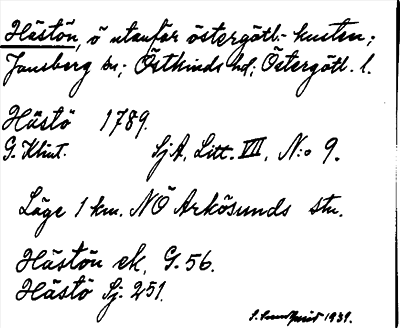 Hästön, ö utanför östergötl.-kusten;
Jonsberg sn; Östkinds hd; Östergötl. l.
Hästö 1789.
G. Klint. SjA, Litt. VII, N:o 9.
Läge 1 km. NÖ Arkösunds stn.
Hästön ek. G. 56.
Hästö Sj. 251.
S. Sundquist 1931.